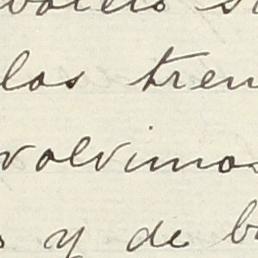 los tren
volvimos
y de b